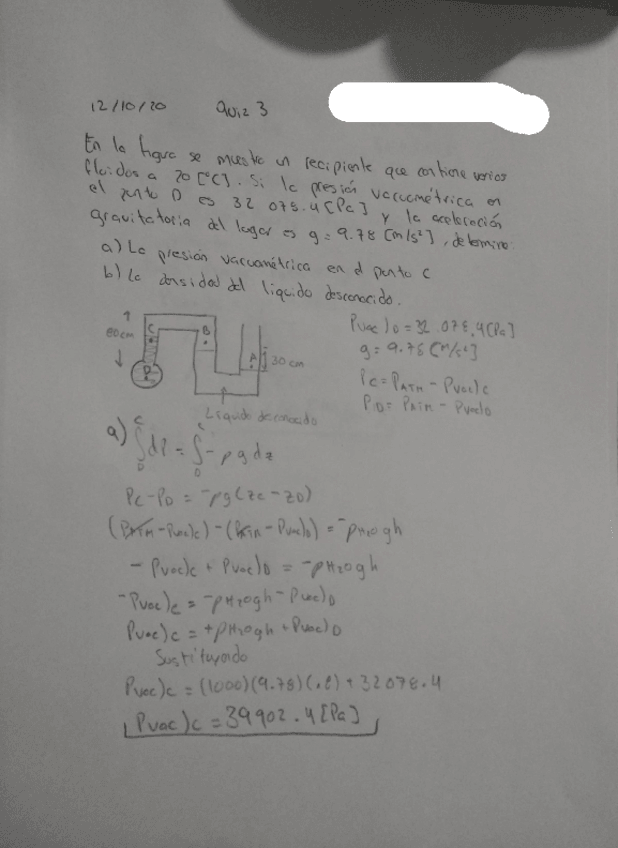 12/10/20 Quiz 3
En la figura se muestra un recipiente que contiene varios
fluidos a 20 [°C]. Si la presión vacuométrica en
el punto D es 32 078.4 [Pa] y la aceleración
gravitatoria del lugar es g = 9.78 [m/s²], determine:
a) La presión vacuométrica en el punto C
b) La densidad del líquido desconocido.
80cm
C
B
A
D
30 cm
Líquido desconocido
Pvac)D = 32 078.4 [Pa]
g = 9.78 [m/s²]
PC = PATM - Pvac)C
PD = PATM - Pvac)D
a) ∫_D^C dP = ∫_D^C -ρgdz
PC - PD = -ρg(zC - zD)
(PATM - Pvac)C) - (PATM - Pvac)D) = -ρH2Ogh
- Pvac)C + Pvac)D = -ρH2Ogh
-Pvac)C = -ρH2Ogh - Pvac)D
Pvac)C = +ρH2Ogh + Pvac)D
Sustituyendo
Pvac)C = (1000)(9.78)(.8) + 32078.4
Pvac)C = 39902.4 [Pa]